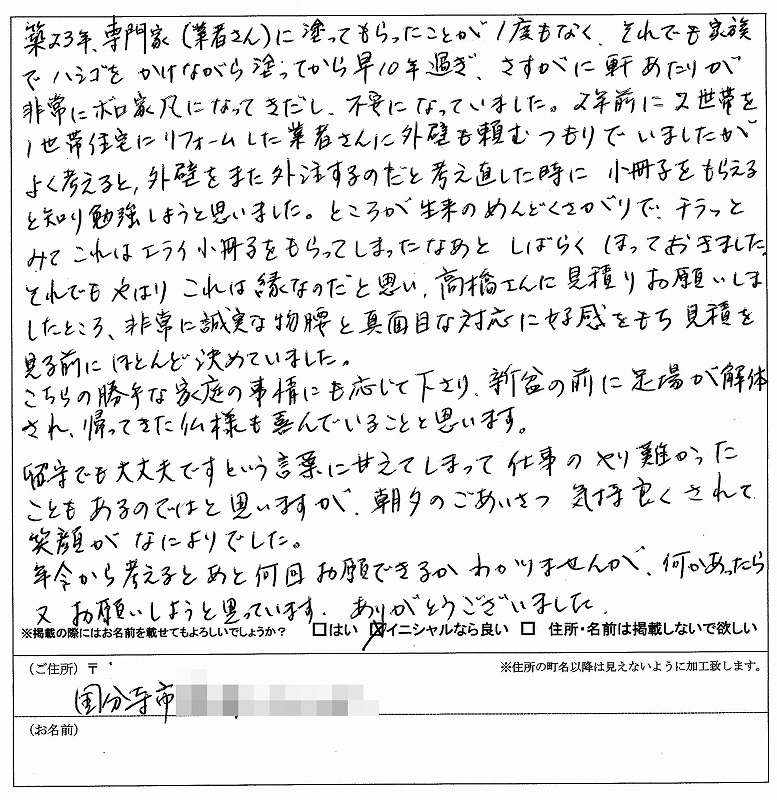 築23年、専門家(業者さん)に塗ってもらったことが1度もなく、それでも家族
でハシゴをかけながら塗ってから早10年過ぎ、さすがに軒あたりが
非常にボロ家風になってきだし、不安になっていました。2年前に2世帯を
1世帯住宅にリフォームした業者さんに外壁も頼むつもりでいましたが
よく考えると、外壁をまた外注するのだと考え直した時に 小冊子をもらえる
と知り勉強しようと思いました。ところが生来のめんどくさがりで、チラッと
みてこれはエライ小冊子をもらってしまったなあと しばらくほっておきました。
それでもやはりこれは縁なのだと思い、高橋さんに見積りお願いしま
したところ、非常に誠実な物腰と真面目な対応に好感をもち見積を
見る前にほとんど決めていました。
こちらの勝手な家庭の事情にも応じて下さり、新盆の前に足場が解体
され、帰ってきた仏様も喜んでいることと思います。
留守でも大丈夫ですという言葉に甘えてしまって仕事のやり難かった
こともあるのではと思いますが、朝夕のごあいさつ 気持良くされて
笑顔がなによりでした。
年令から考えるとあと何回お願できるかわかりませんが、何かあったら
又お願いしようと思っています。ありがとうございました。
※掲載の際にはお名前を載せてもよろしいでしょうか? □はい ☑イニシャルなら良い □ 住所・名前は掲載しないで欲しい
(ご住所)〒 ※住所の町名以降は見えないように加工致します。
国分寺市
(お名前)